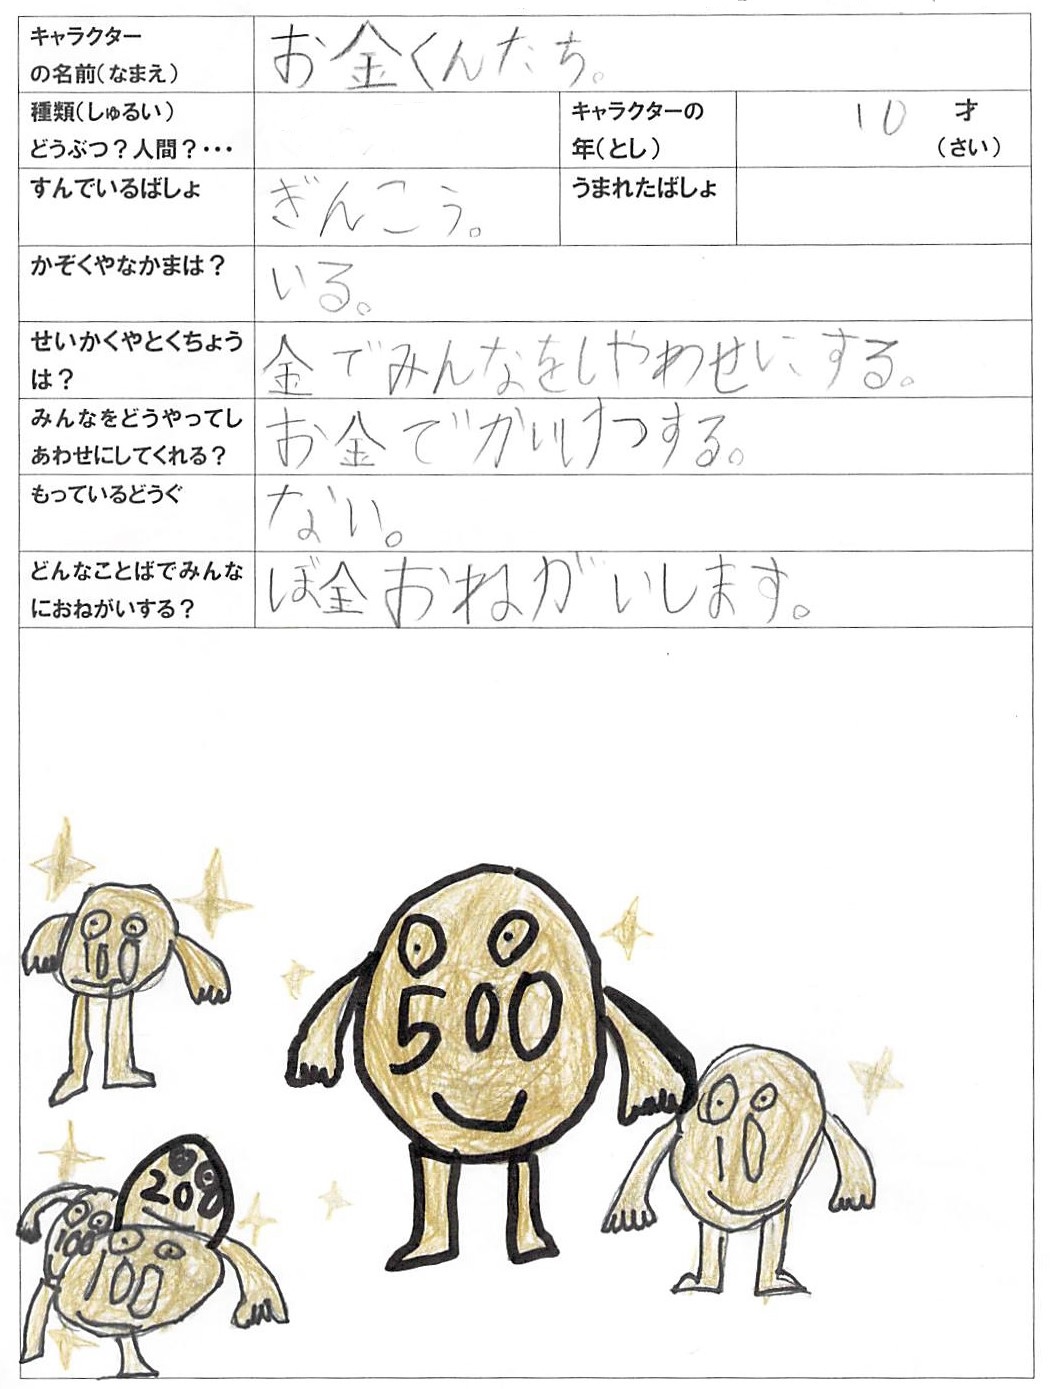 キャラクター
の名前(なまえ)
お金くんたち。
種類(しゅるい)
どうぶつ？人間？・・・
キャラクターの
年(とし)
10 才
(さい)
すんでいるばしょ
ぎんこう。
うまれたばしょ
かぞくやなかまは？
いる。
せいかくやとくちょう
は？
金でみんなをしやわせにする。
みんなをどうやってし
あわせにしてくれる？
お金でかいけつする。
もっているどうぐ
ない。
どんなことばでみんな
におねがいする？
ぼ金おねがいします。
100
500
10
200
100
100